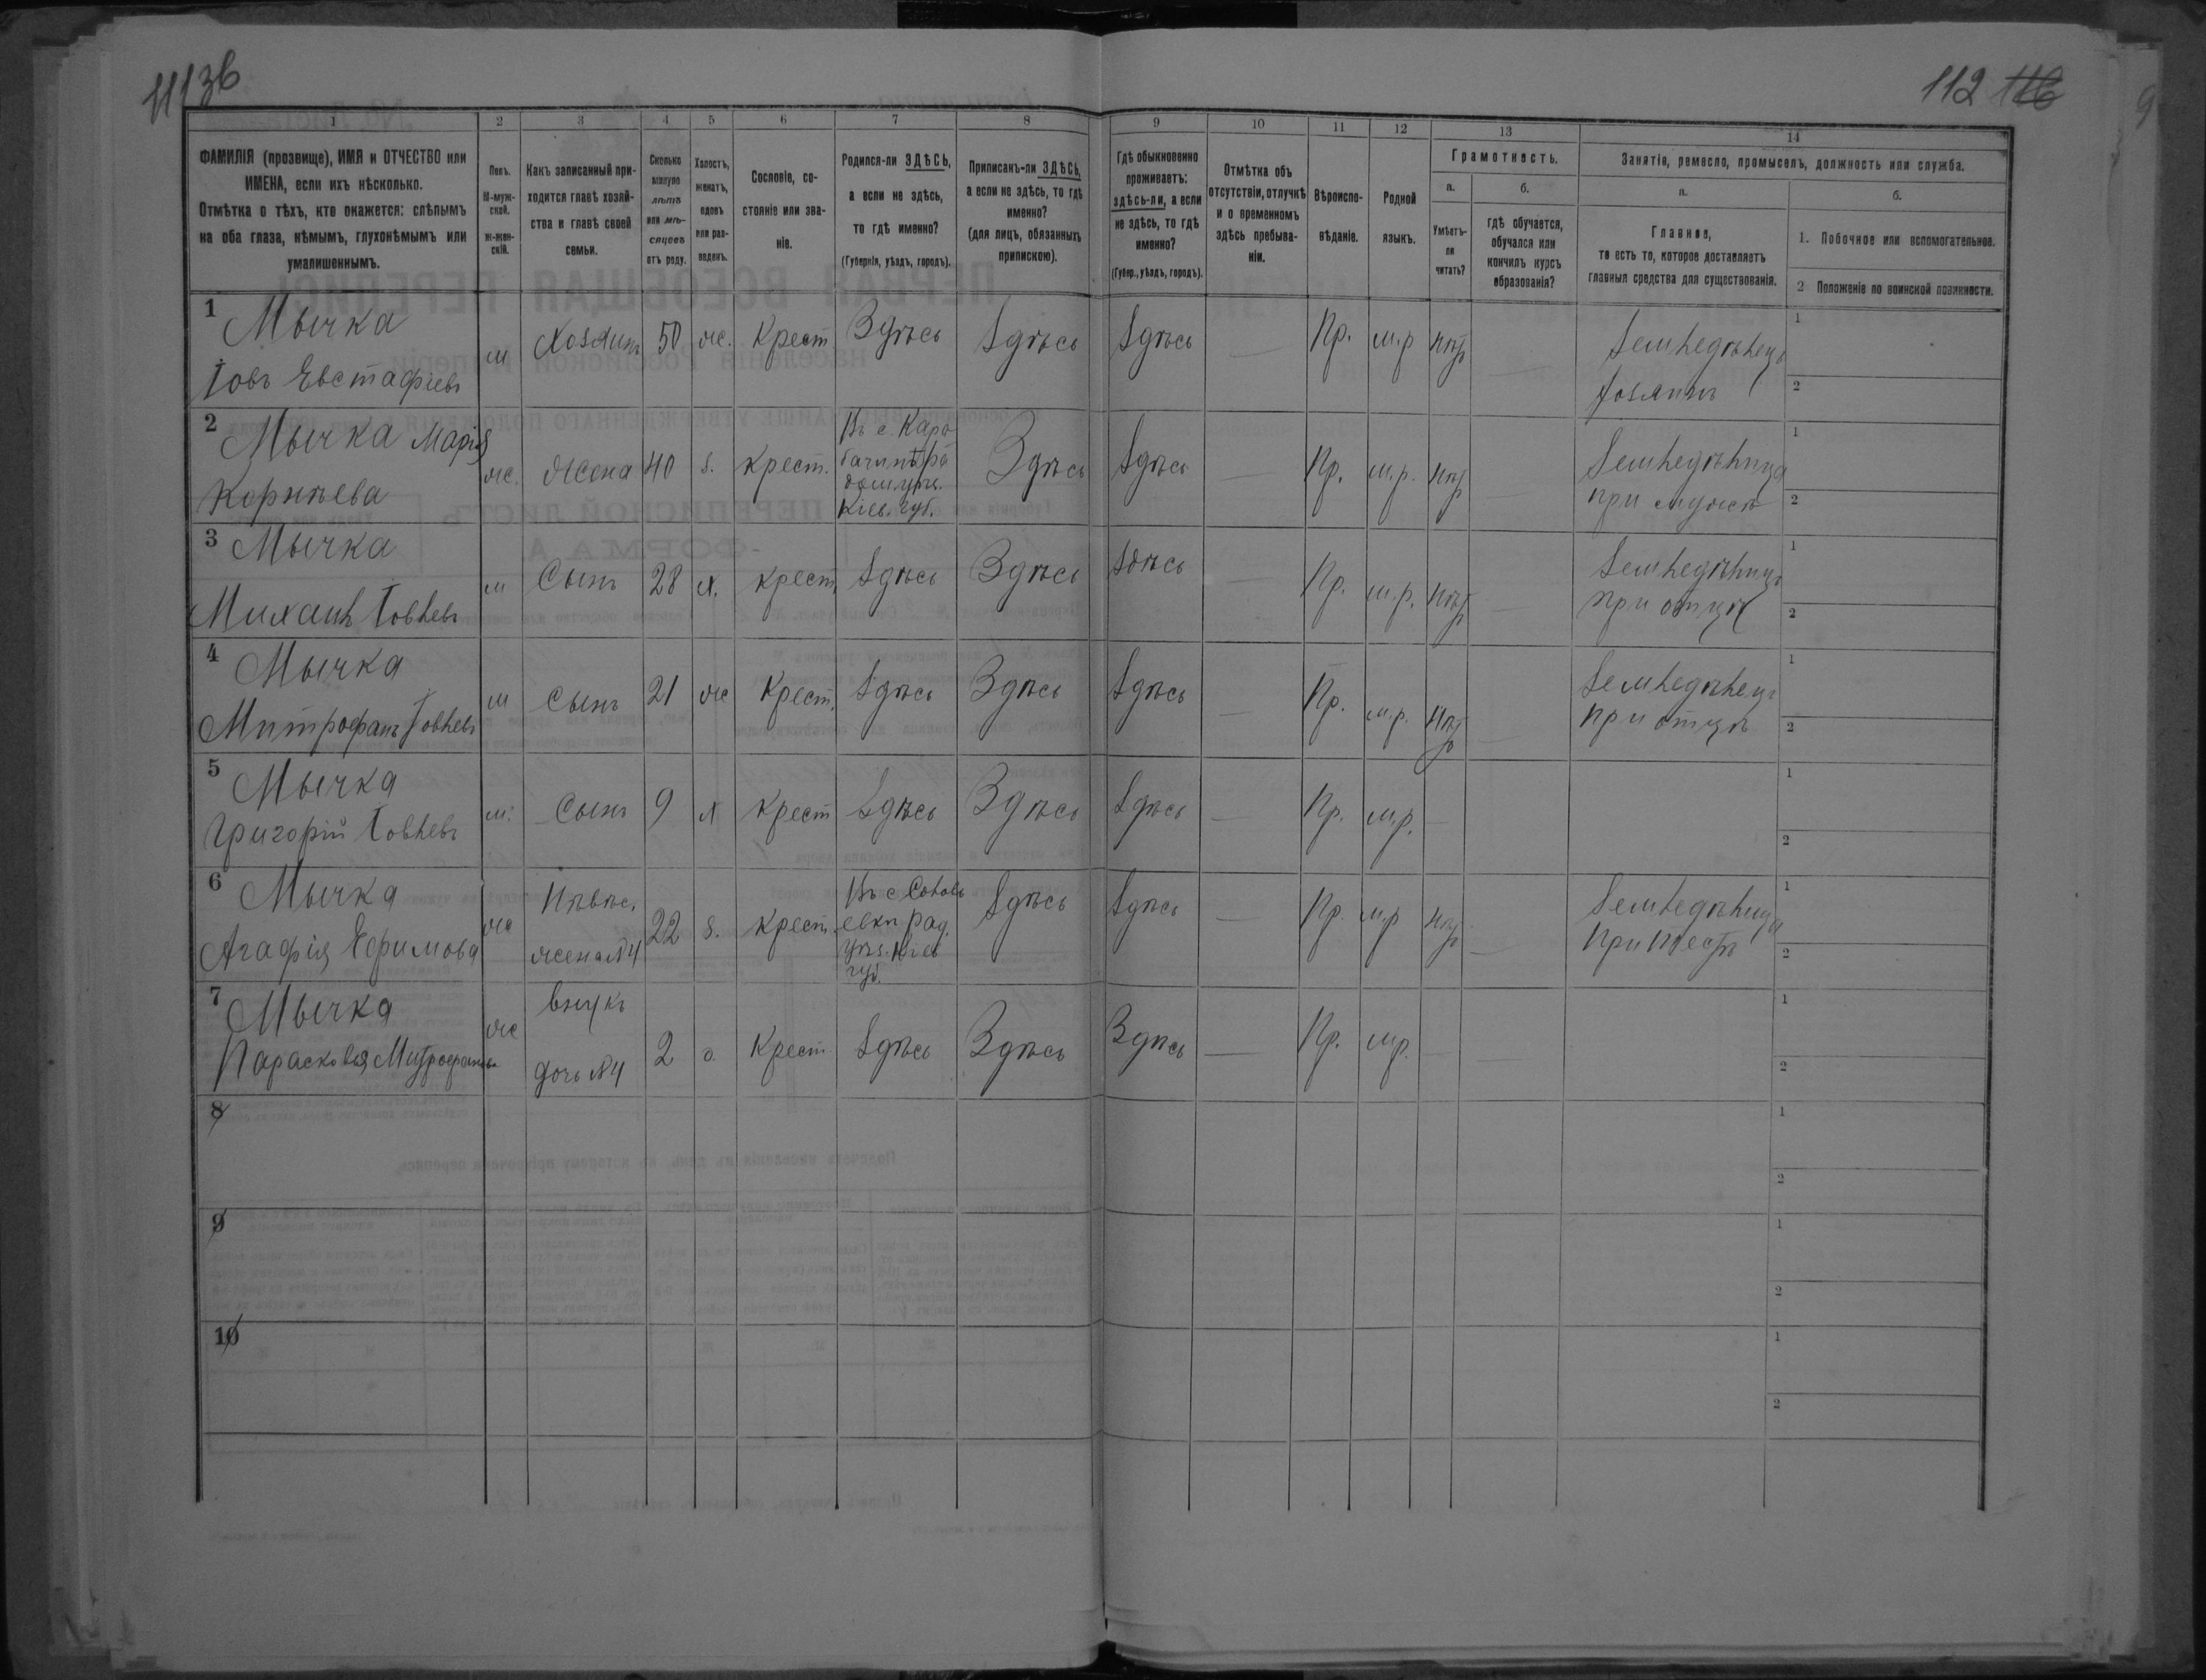 1113б
112 116
1 2 3 4 5 6 7 8 9 10 11 12 13 14
ФАМИЛІЯ (прозвище), ИМЯ и ОТЧЕСТВО или
ИМЕНА, если ихъ нѣсколько.
Отмѣтка о тѣхъ, кто окажется: слѣпымъ
на оба глаза, нѣмымъ, глухонѣмымъ или
умалишеннымъ.
Полъ.
М-муж-
ской.
ж-жен-
скій.
Какъ записанный при-
ходится главѣ хозяй-
ства и главѣ своей
семьи.
Сколько
минуло
лѣтъ
или мѣ-
сяцевъ
отъ роду.
Холостъ,
женатъ,
вдовъ
или раз-
веденъ.
Сословіе, со-
стояніе или зва-
ніе.
Родился-ли ЗДѢСЬ,
а если не здѣсь,
то гдѣ именно?
(Губернія, уѣздъ, городъ).
Приписанъ-ли ЗДѢСЬ,
а если не здѣсь, то гдѣ
именно?
(для лицъ, обязанныхъ
припискою).
Гдѣ обыкновенно
проживаетъ:
здѣсь-ли, а если
не здѣсь, то гдѣ
именно?
(Губер., уѣздъ, городъ).
Отмѣтка объ
отсутствіи, отлучкѣ
и о временномъ
здѣсь пребыва-
ніи.
Вѣроиспо-
вѣданіе.
Родной
языкъ.
Грамотность.
а.
Умѣетъ-
ли
читать?
б.
гдѣ обучается,
обучался или
кончилъ курсъ
образованія?
Занятіе, ремесло, промыселъ, должность или служба.
а.
Главное,
то есть то, которое доставляетъ
главныя средства для существованія.
б.
1. Побочное или вспомогательное.
2 Положеніе по воинской повинности.
1 Мычка
Іовъ Евстафіевъ
м Хозяинъ 50 ж. Крест Здѣсь Здѣсь Здѣсь — Пр. м.р нѣтъ — Земледѣлецъ
хозяинъ
1
2
2 Мычка Марія
Корнѣева
ж. Жена 40 з. крест. Въ с. Каро
бачинѣ Ра
домыс.
Кіев. губ.
Здѣсь Здѣсь — Пр. м.р. нѣтъ — Земледѣлица
при мужѣ
1
2
3 Мычка
Михаилъ Іовлевъ
м Сынъ 28 х. крест Здѣсь Здѣсь Здѣсь — Пр. м.р. нѣтъ — Земледѣлецъ
при отцѣ
1
2
4 Мычка
Митрофанъ Іовлевъ
м Сынъ 21 ж Крест. Здѣсь Здѣсь Здѣсь — Пр. м.р. нѣтъ — Земледѣлецъ
при отцѣ
1
2
5 Мычка
Григорій Іовлевъ
м. Сынъ 9 х Крест Здѣсь Здѣсь Здѣсь — Пр. м.р. —
1
2
6 Мычка
Агафія Ефимова
ж Невѣс.
жена №4
22 з. крест. Въ с Солов
евкѣ Рад.
уѣз. Кіев
губ.
Здѣсь Здѣсь — Пр. м.р нѣтъ — Земледѣлица
при тестѣ
1
2
7 Мычка
Парасковія Митрофанова
ж внукъ
дочь №4
2 о. Крест Здѣсь Здѣсь Здѣсь — Пр. м.р. —
1
2
8
1
2
9
1
2
10
1
2